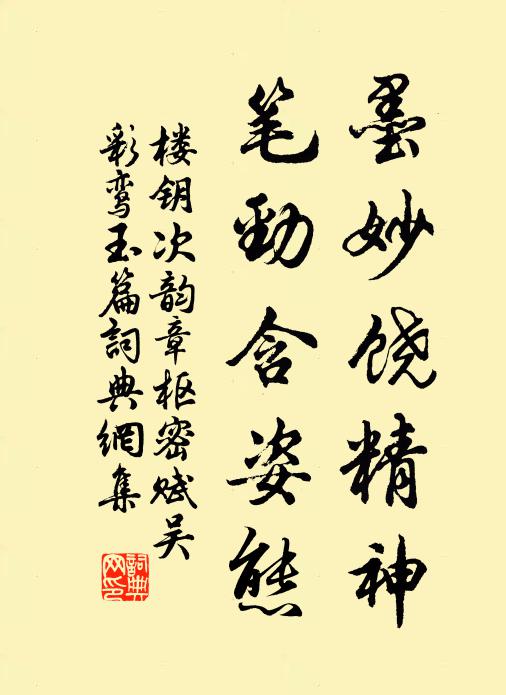 墨妙饶精神
笔劲含姿态
楼钥次韵章枢密赋吴
彩鸾玉篇词典網集
詞典
网印